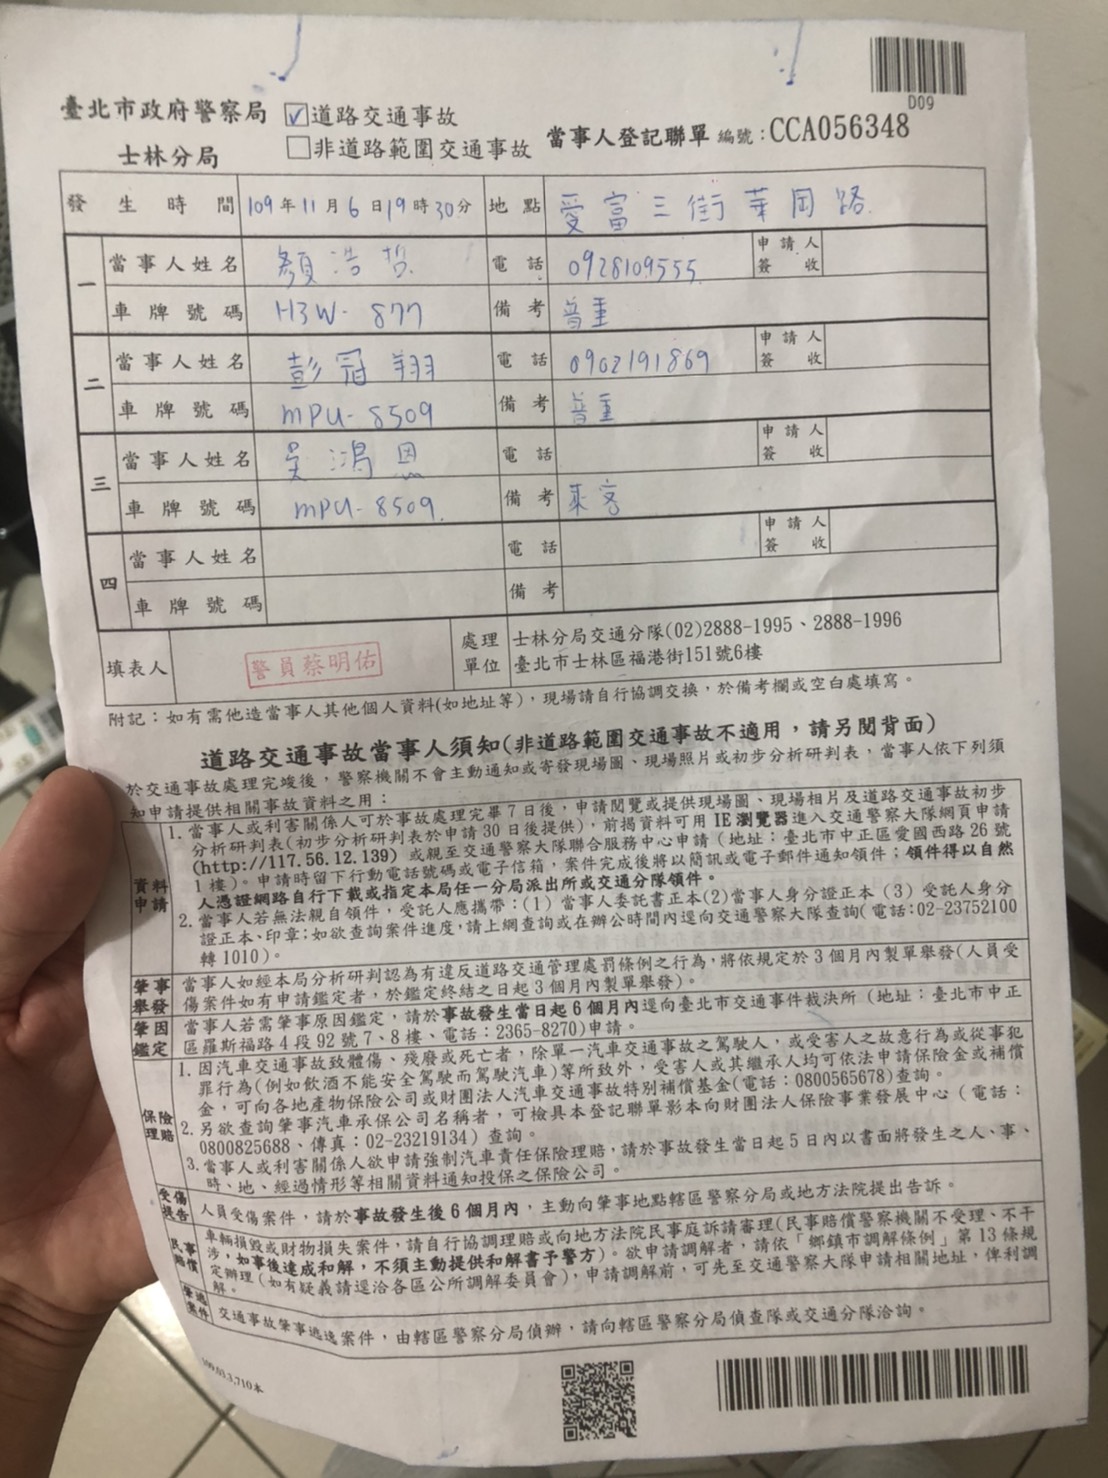 D09
臺北市政府警察局
士林分局
☑道路交通事故
☐非道路範圍交通事故
當事人登記聯單 編號：CCA056348
發生時間 109年11月6日19時30分 地點 愛富三街華岡路
一 當事人姓名 顏浩哲 電話 0928109555 申請人簽收
車牌號碼 H3W-877 備考 普重
二 當事人姓名 彭冠翔 電話 0902191869 申請人簽收
車牌號碼 MPU-8509 備考 普重
三 當事人姓名 吳鴻恩 電話 申請人簽收
車牌號碼 MPU-8509 備考 乘客
四 當事人姓名 電話 申請人簽收
車牌號碼 備考
填表人 警員蔡明佑 處理單位 士林分局交通分隊(02)2888-1995、2888-1996
臺北市士林區福港街151號6樓
附記：如有需他造當事人其他個人資料(如地址等)，現場請自行協調交換，於備考欄或空白處填寫。
道路交通事故當事人須知(非道路範圍交通事故不適用，請另閱背面)
於交通事故處理完竣後，警察機關不會主動通知或寄發現場圖、現場照片或初步分析研判表，當事人依下列須
知申請提供相關事故資料之用：
資料申請
1.當事人或利害關係人可於事故處理完畢7日後，申請閱覽或提供現場圖、現場相片及道路交通事故初步
分析研判表(初步分析研判表於申請30日後提供)，前揭資料可用IE瀏覽器進入交通警察大隊網頁申請
(http://117.56.12.139)或親至交通警察大隊聯合服務中心申請(地址：臺北市中正區愛國西路26號
1樓)。申請時留下行動電話號碼或電子信箱，案件完成後將以簡訊或電子郵件通知領件；領件得以自然
人憑證網路自行下載或指定本局任一分局派出所或交通分隊領件。
2.當事人若無法親自領件，受託人應攜帶：(1)當事人委託書正本(2)當事人身分證正本(3)受託人身分
證正本、印章；如欲查詢案件進度，請上網查詢或在辦公時間內逕向交通警察大隊查詢(電話:02-23752100
轉1010)。
肇事舉發
當事人如經本局分析研判認為有違反道路交通管理處罰條例之行為，將依規定於3個月內製單舉發(人員受
傷案件如有申請鑑定者，於鑑定終結之日起3個月內製單舉發)。
肇因鑑定
當事人若需肇事原因鑑定，請於事故發生當日起6個月內逕向臺北市交通事件裁決所(地址：臺北市中正
區羅斯福路4段92號7、8樓、電話：2365-8270)申請。
保險理賠
1.因汽車交通事故致體傷、殘廢或死亡者，除單一汽車交通事故之駕駛人，或受害人之故意行為或從事犯
罪行為(例如飲酒不能安全駕駛而駕駛汽車)等所致外，受害人或其繼承人均可依法申請保險金或補償
金，可向各地產物保險公司或財團法人汽車交通事故特別補償基金(電話：0800565678)查詢。
2.另欲查詢肇事汽車承保公司名稱者，可檢具本登記聯單影本向財團法人保險事業發展中心(電話：
0800825688、傳真：02-23219134)查詢。
3.當事人或利害關係人欲申請強制汽車責任保險理賠，請於事故發生當日起5日內以書面將發生之人、事、
時、地、經過情形等相關資料通知投保之保險公司。
受傷提告
人員受傷案件，請於事故發生後6個月內，主動向肇事地點轄區警察分局或地方法院提出告訴。
民事賠償
車輛損毀或財物損失案件，請自行協調理賠或向地方法院民事庭訴請審理(民事賠償警察機關不受理、不干
涉，如事後達成和解，不須主動提供和解書予警方)。欲申請調解者，請依「鄉鎮市調解條例」第13條規
定辦理(如有疑義請逕洽各區公所調解委員會)，申請調解前，可先至交通警察大隊申請相關地址，俾利調
解。
肇逃案件
交通事故肇事逃逸案件，由轄區警察分局偵辦，請向轄區警察分局偵查隊或交通分隊洽詢。
109.03.3,710本